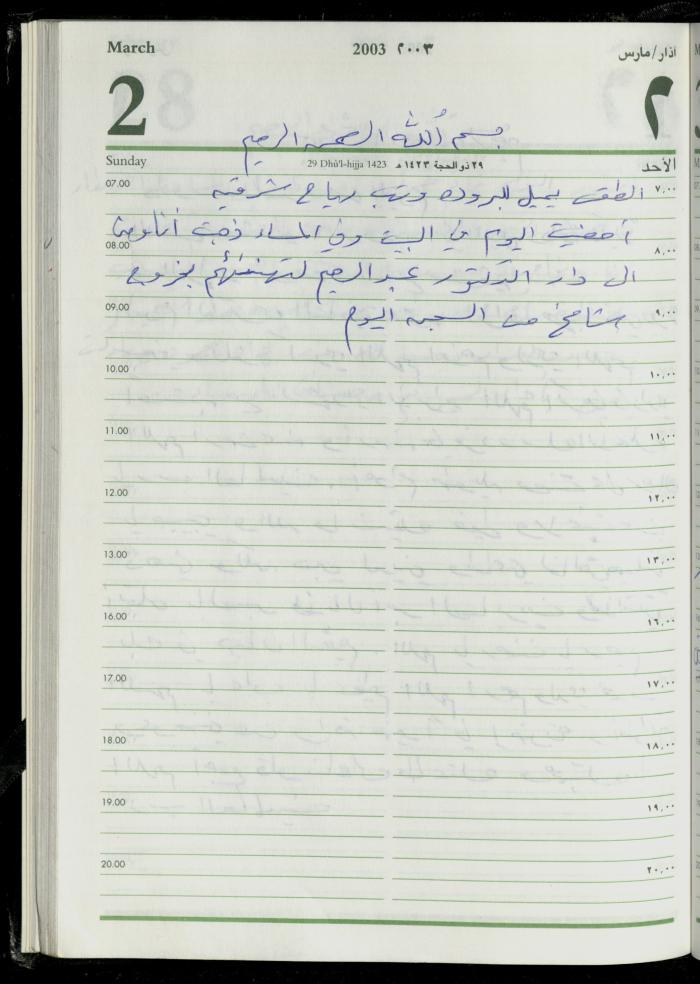 March 2003 ٢٠٠٣ اذار/مارس
2 ٢
بسم الله الرحمن الرحيم
Sunday 29 Dhū'l-hijja 1423 ٢٩ ذو الحجة ١٤٢٣ هـ الأحد
07.00 الطقس يميل للبروده وتهب رياح شرقيه ٧,٠٠
أمضيت اليوم في البيت وفي المساء ذهبت أنا و
08.00 ٨,٠٠
الى دار الدكتور عبد الرحيم لتهنئتهم بخروج
09.00 ٩,٠٠
من السجن اليوم
10.00 ١٠,٠٠
11.00 ١١,٠٠
12.00 ١٢,٠٠
13.00 ١٣,٠٠
16.00 ١٦,٠٠
17.00 ١٧,٠٠
18.00 ١٨,٠٠
19.00 ١٩,٠٠
20.00 ٢٠,٠٠